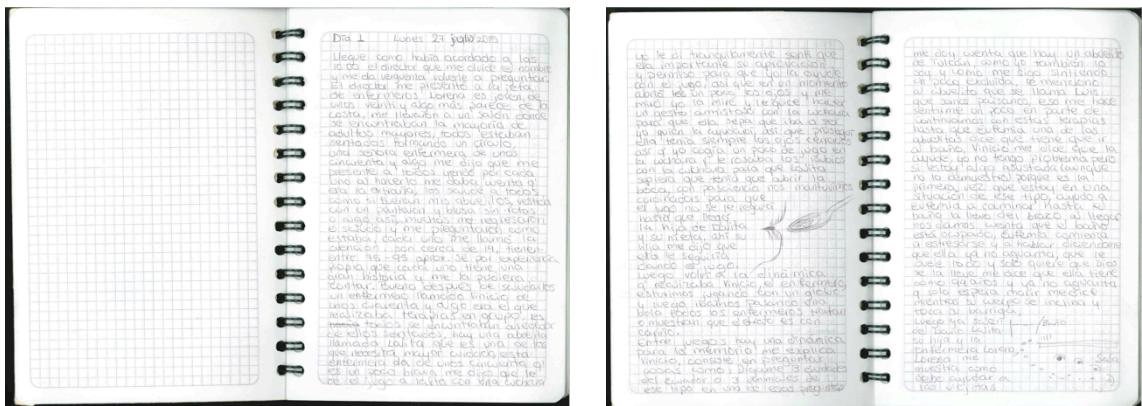 Día 1 Lunes 27 julio 2015
Llegue como había acordado a las
10:00 el director que me olvide el nombre
y me da verguenza volverle a preguntar.
El director me presento a la jefa
de enfermeros, Lorena es joven de
unos veinti y algo más parece de la
costa, me llevaron a un salón donde
se encontraban la mayoría de
adultos mayores, todos estaban
sentados formando un círculo,
una señora enfermera de unos
cincuenta y algo me dijo que me
presente a todos yendo por cada
uno al hacerlo me daba cuenta q'
era lo extraña, los salude a todos
como si fueran mis abuelitos, vestida
con un pantalón y blusa sin rotos
y algo así, muchos me regresaron
el saludo y me preguntaron como
estaba, cada uno me llamó la
atención. Son cerca de 14, tienen
entre 75-95 aprox. Se por experiencia
propia que cada uno tiene una
gran historia y me la pudiera
contar. Bueno después de saludarlos
un enfermero llamado Vinicio de
unos cuarenta y algo era el que
realizaba terapias en grupo, es
todos se encontraban alrededor
de ellos sentados, hay una abuelita
llamada Lolita que es una de las
que necesita mayor cuidado, esta
enfermera de unos cincuenta q'
es un poco brava me dijo que le
de el jugo a lolita con una cuchara
yo le di tranquilamente sentí que
era importante su aprobación
y permiso para que yo la ayude
con el jugo, así que en un momento
abrió un poco los ojos y me
miró yo la mire y le hice
un gesto amistoso con la cuchara
para que ella sepa que iba a ser
yo quien la ayudara, así que
ella tenía siempre los ojos cerrados
así q' yo cogía un poco de jugo en
la cuchara y le rosaba los labios
con la cuchara para que Lolita
supiera que tenía que abrir la
boca, con pasciencia nos mantuvimos
para que
el jugo no se le
hasta que llegó
la hija de Lolita
y su nieta, ahí su
hija me dijo que
ella le seguira
dando el jugo.
Luego volví a la dinámica
q' realizaba Vinicio, el enfermero,
estuvimos jugando con un globo
y luego reímos pasando una
bola todos los enfermeros tratan
o muestran que el trato es con
cariño.
Entre juegos hay una dinámica
para la memoria me explica
Vinicio, consiste en preguntar
cosas como: Digame 3 ciudades
del ecuador o 3 animales de
ese tipo en una de esas preguntas
me doy cuenta que hay un abuelito
de Tulcán, como yo también lo
soy y como me sigo sintiendo
un poco excluida, le menciono
al abuelito que se llama Luis
que somos paisanos, eso me hace
sentirme un poco en parte de
continuamos con estas terapias
hasta que Eufemia una de las
abuelitas dice que tiene que ir
al baño, Vinicio me dice que la
ayude, yo no tengo problema pero
si estoy algo asustada (aunque
no lo demuestro) porque es
primera vez que estoy en una
situación de este tipo, ayudo a
Eufemia a caminar hasta el
baño la llevo del brazo al llegar
nos damos cuenta que el baño
está ocupado, Eufemia comienza
a estresarse y a hablar diciendome
que ella ya no aguanta, que le
duele todo y solo quiere que Dios
se la lleve me dice que ella tiene
como 99 años y ya no aguanta
y solo espera morir me dice
mientras su cuerpo se inclina y
toca su barriga,
luego ya salen Baño
del baño Lolita
su hija y la
enfermera Lorena, Sala
Lorena me
muestra como
debo ayudar a
las viejitas